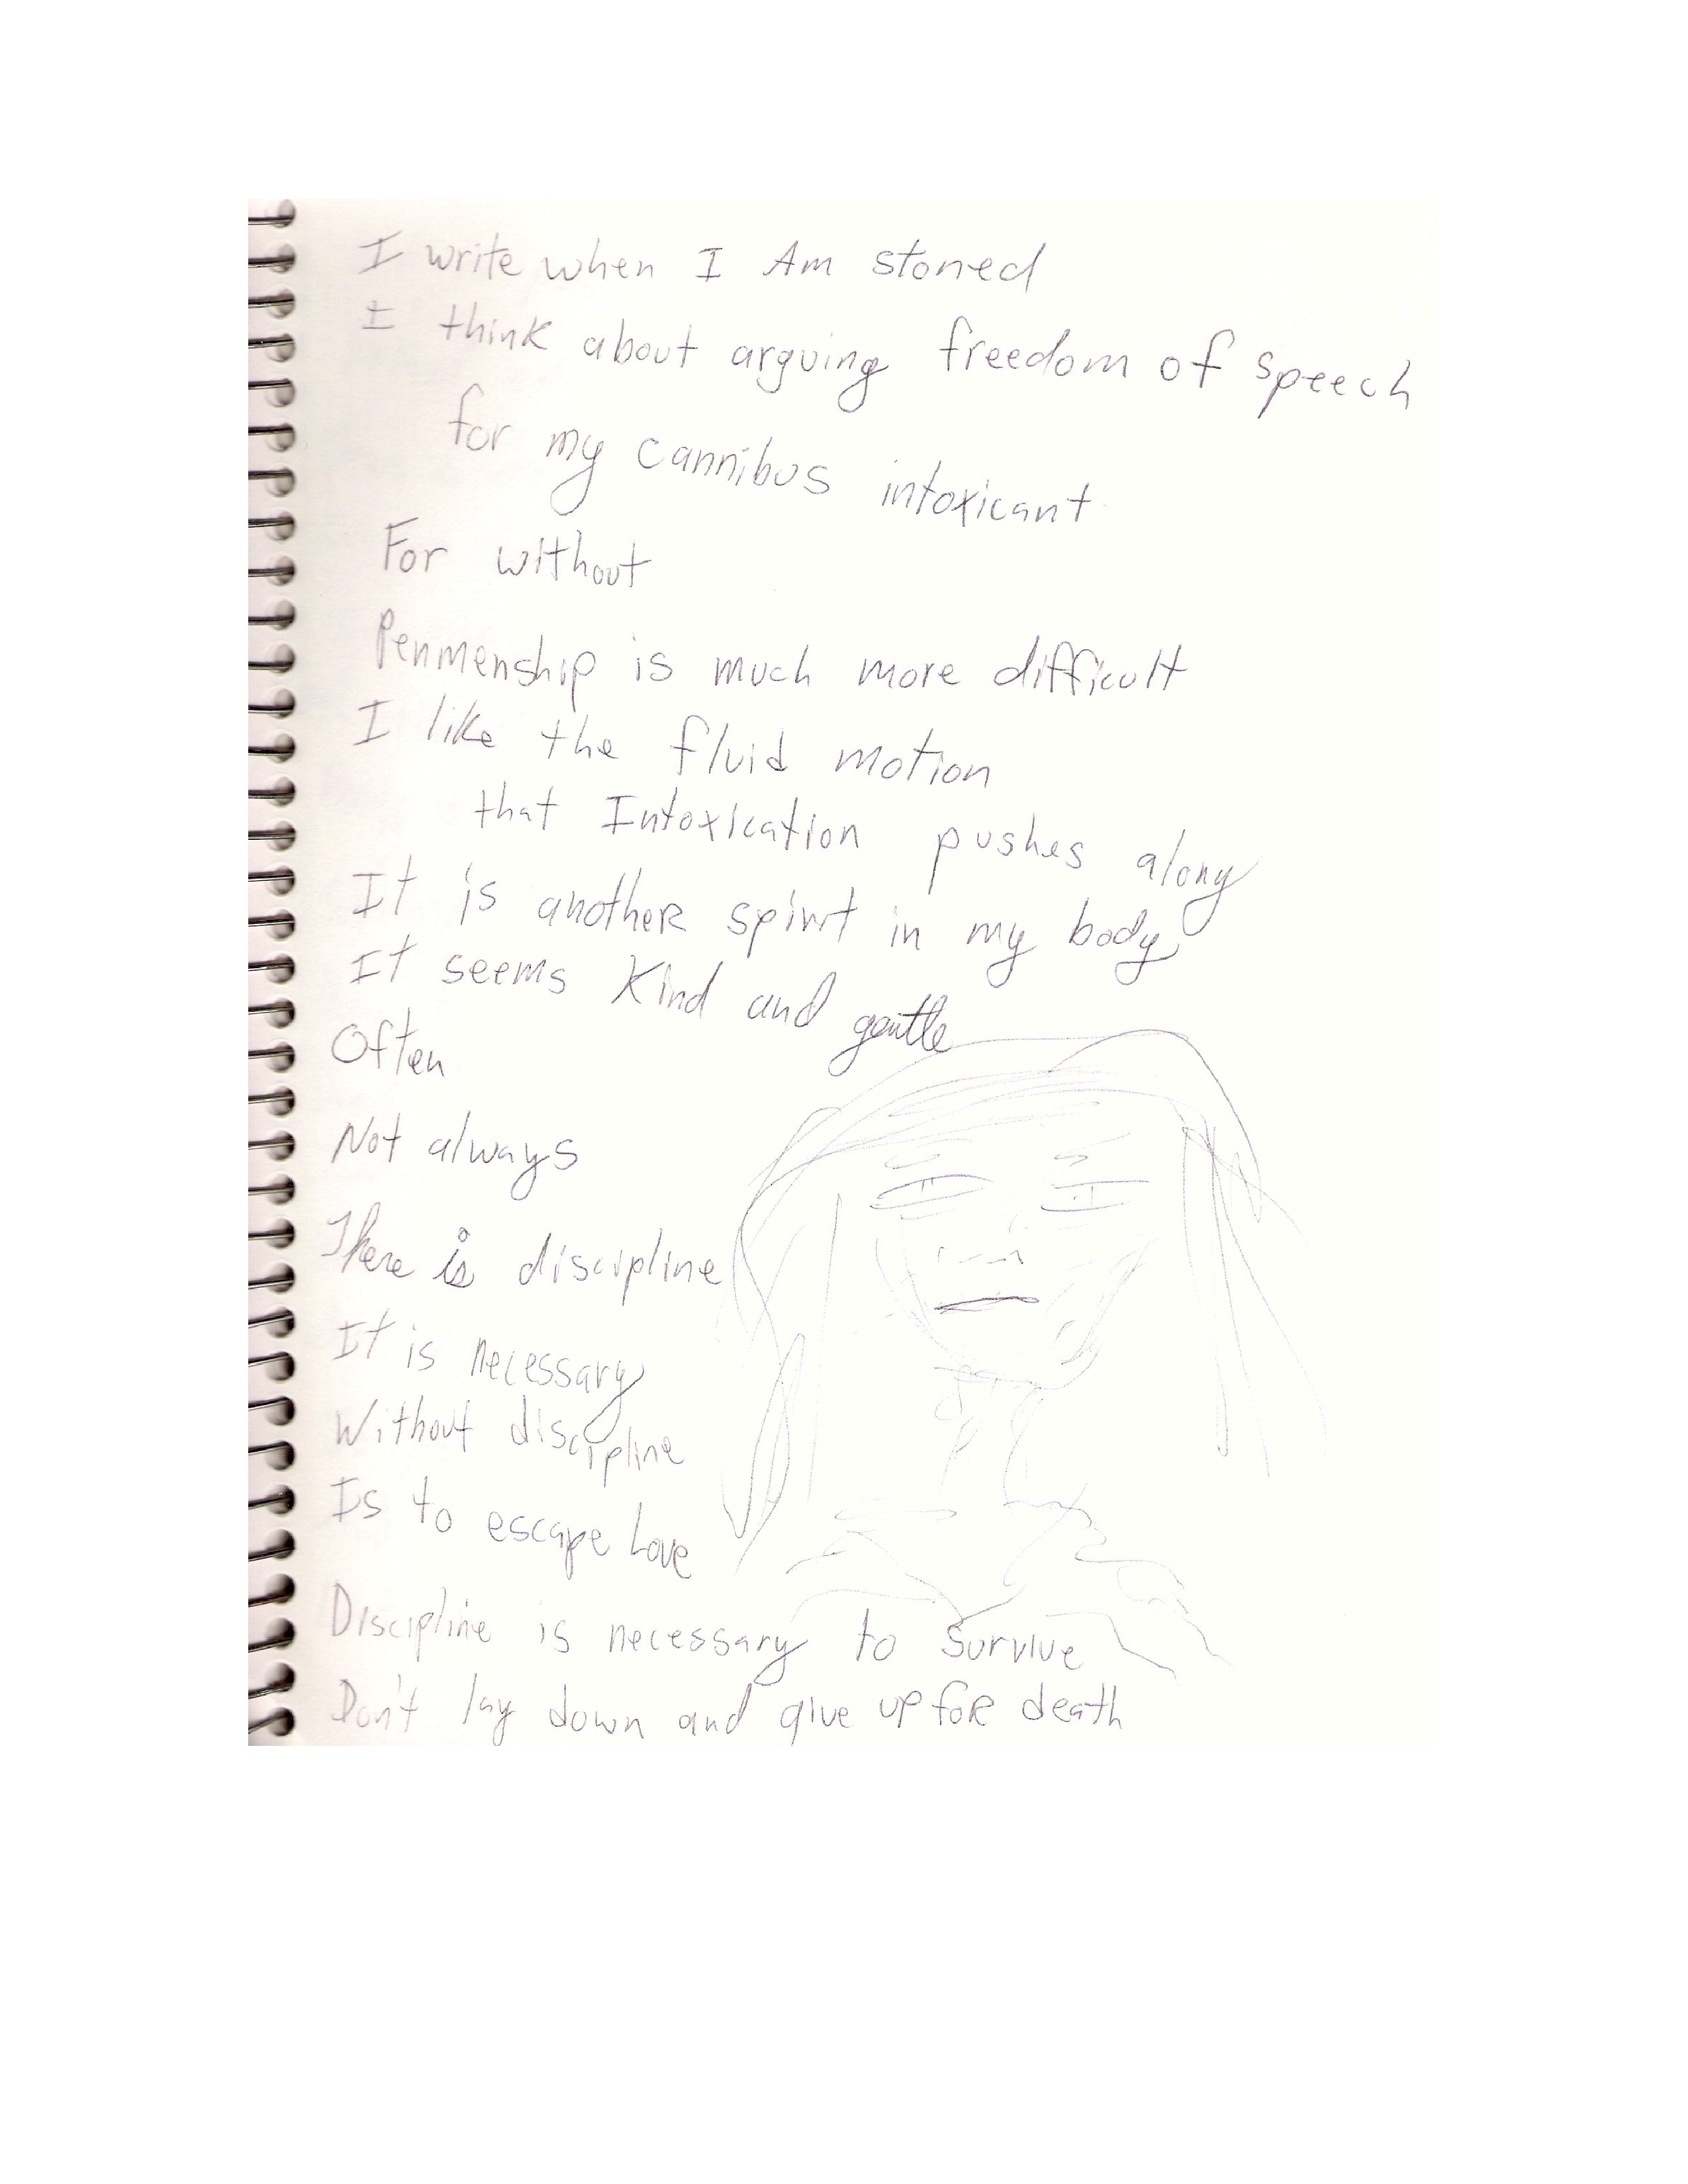 I write when I Am stoned
I think about arguing freedom of speech
for my cannibus intoxicant
For without
Penmenship is much more difficult
I like the fluid motion
that Intoxication pushes along
It is another spirit in my body
It seems Kind and gentle
Often
Not always
There is discipline
It is necessary
Without discipline
Is to escape Love
Discipline is necessary to survive
Don't lay down and give up for death